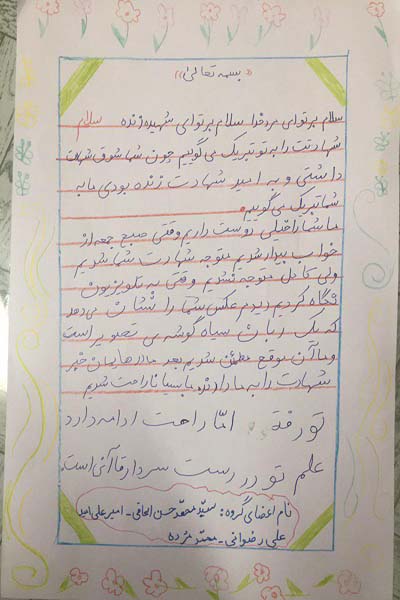 « بسمه تعالی »
سلام بر توای مرد خدا سلام بر توای شهید زنده سلام
شهادتت را به تو تبریک می گوییم چون شما شوق شهادت
داشتی و به امید شهادت زنده بودی ما به
شما تبریک می گوییم.
ما شما را خیلی دوست داریم وقتی صبح جمعه از
خواب بیدار شدیم متوجه شهادت شما شدیم
ولی کامل متوجه نشدیم وقتی به تلویزیون
نگاه کردیم دیدیم عکس شما را نشان می دهد
که یک ربان سیاه گوشه ی تصویر است
و ما آن موقع مطمئن شدیم بعد مادرهایمان خبر
شهادت را به ما دادند ما بسیار ناراحت شدیم
تو رفته امّا راهت ادامه دارد
علم تو در دست سردار قاآنی است.
نام اعضای گروه: سیّد محمّد حسن - امیر علی
علی رضوانی -